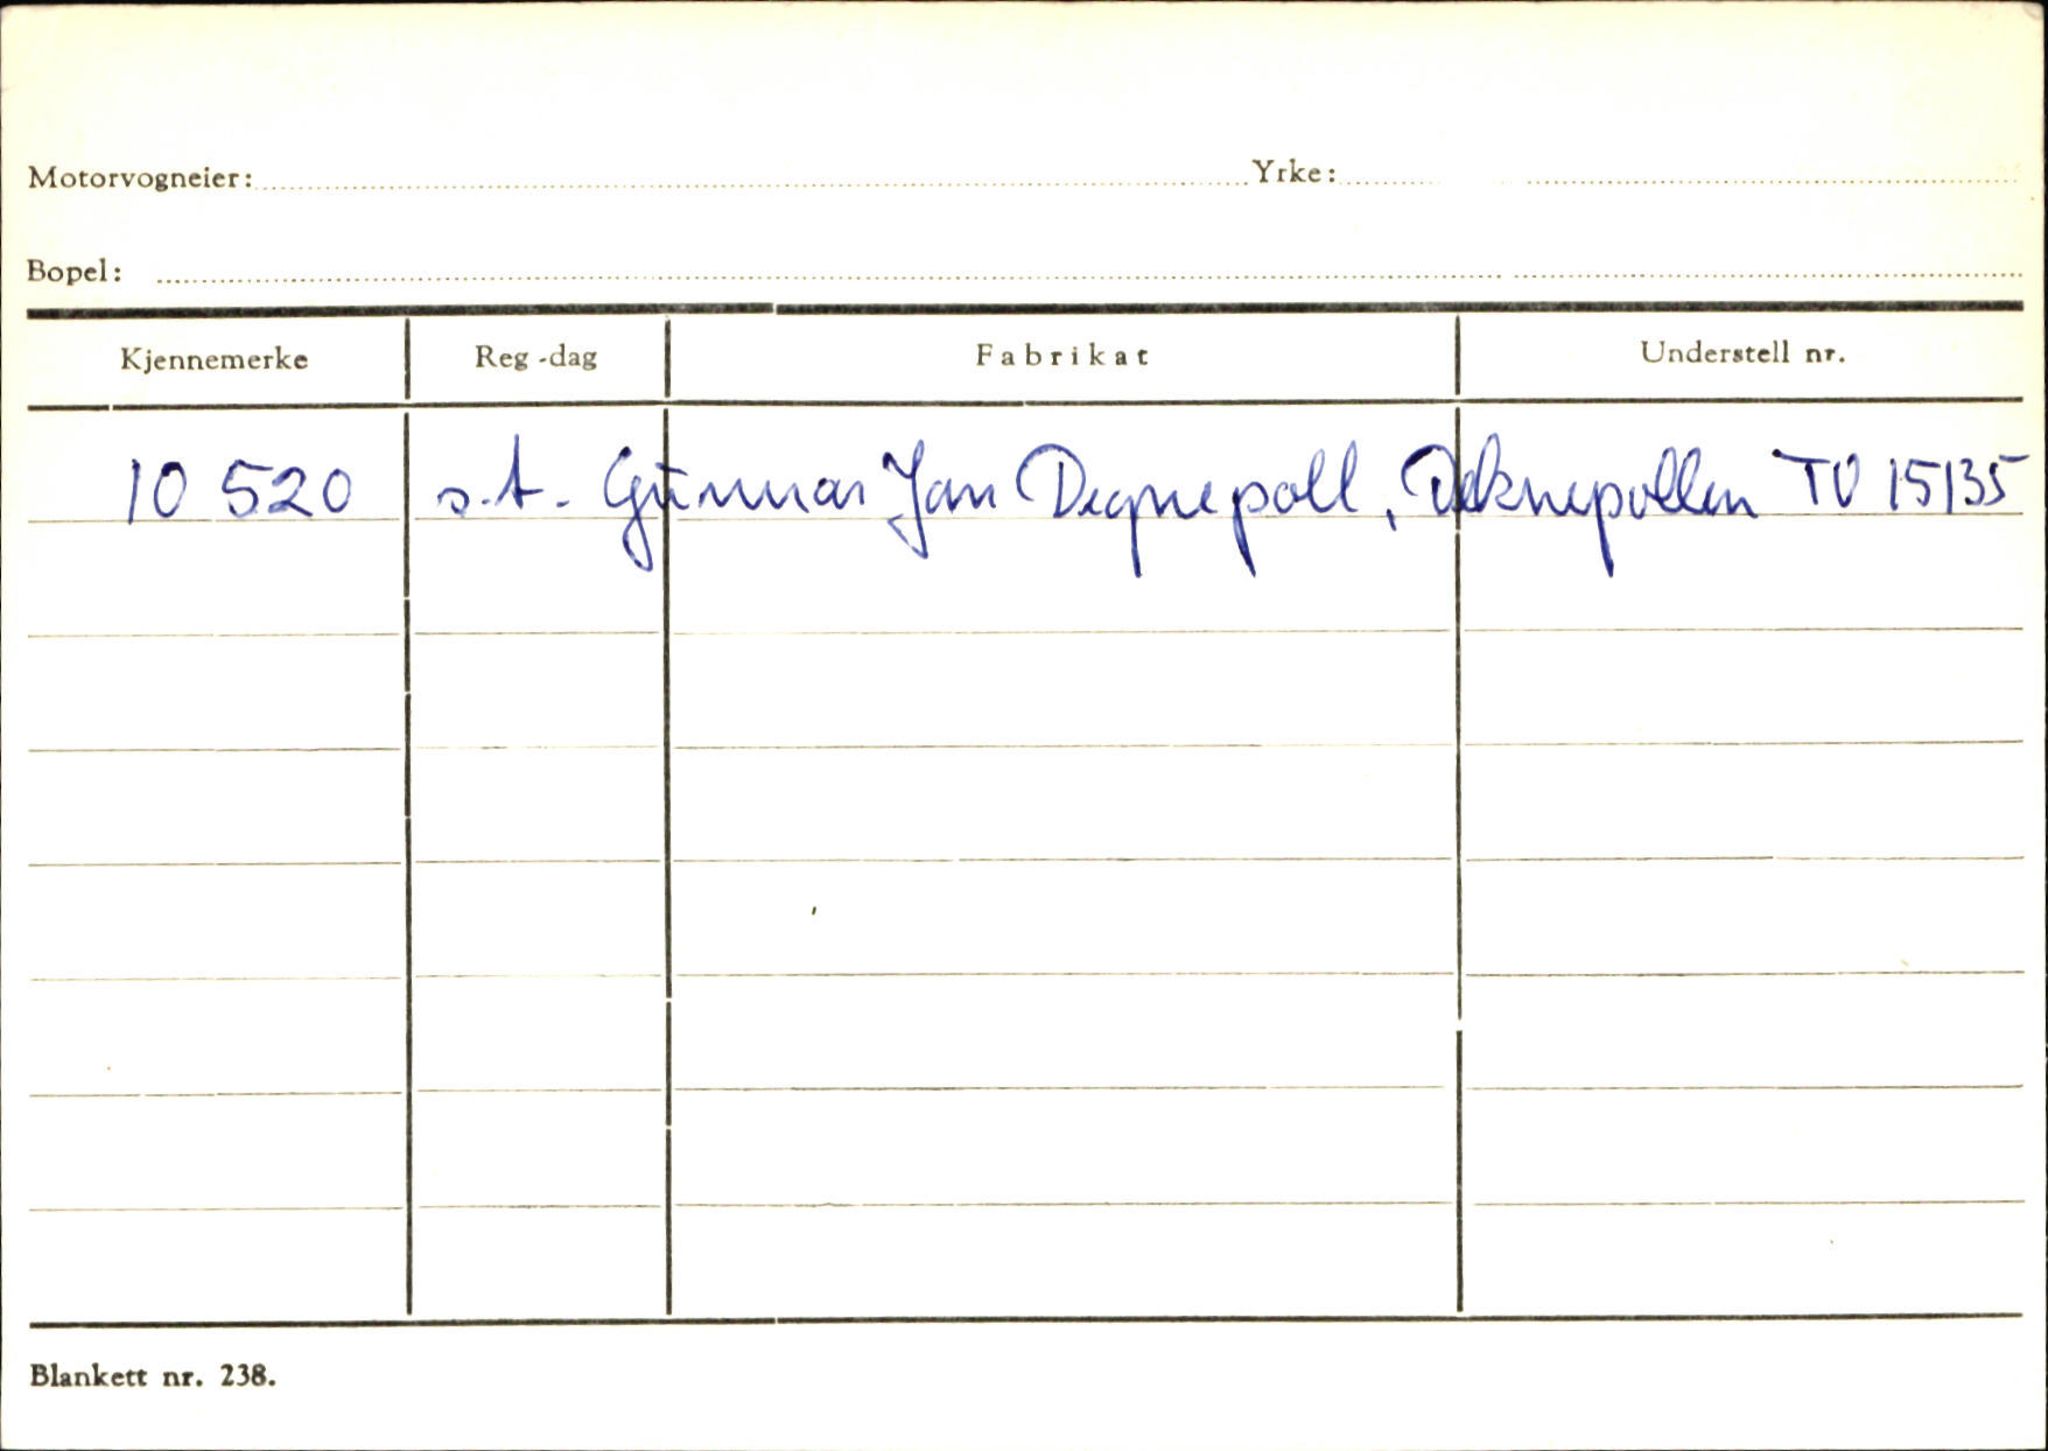 Motorvogneier: Yrke:
Bopel:
Kjennemerke Reg-dag Fabrikat Understell nr.
10 520 s.t. Gunnar Jan Degnepoll, Deknepollen TU 15135
Blankett nr. 238.